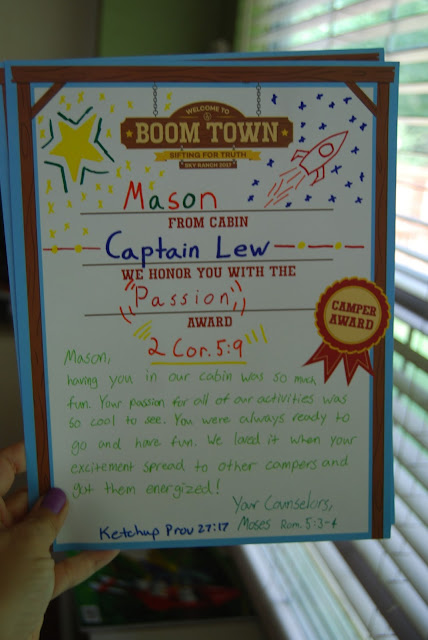 WELCOME TO
BOOM TOWN
SIFTING FOR TRUTH
SKY RANCH 2017
Mason
FROM CABIN
Captain Lew
WE HONOR YOU WITH THE
"Passion"
AWARD
2 Cor. 5:9
CAMPER
AWARD
Mason,
having you in our cabin was so much
fun. Your passion for all of our activities was
so cool to see. You were always ready to
go and have fun. We loved it when your
excitement spread to other campers and
got them energized!
Your Counselors,
Ketchup Prov 27:17 Moses Rom. 5:3-4